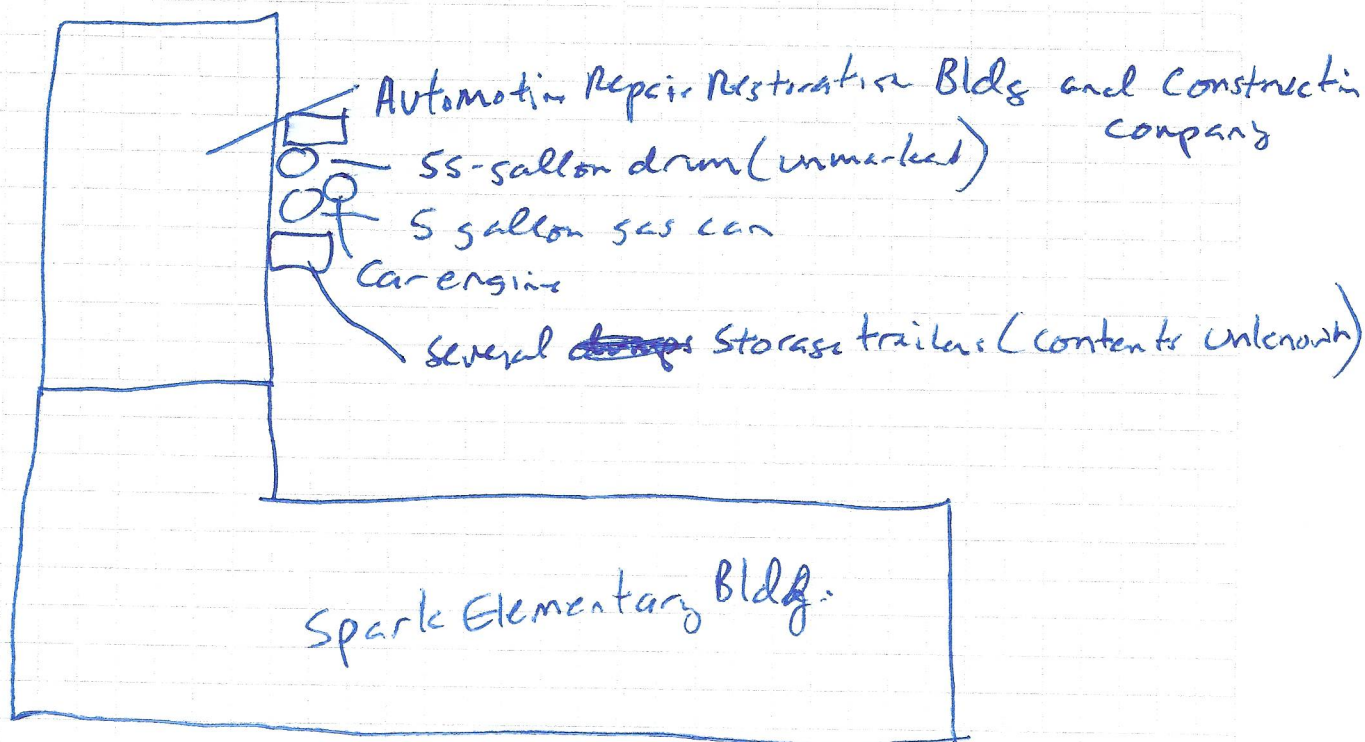 Automotive Repair Restoration Bldg and Construction
company
55-gallon drum (unmarked)
5 gallon gas can
Car engine
several storage trailers (contents unknown)
Spark Elementary Bldg.